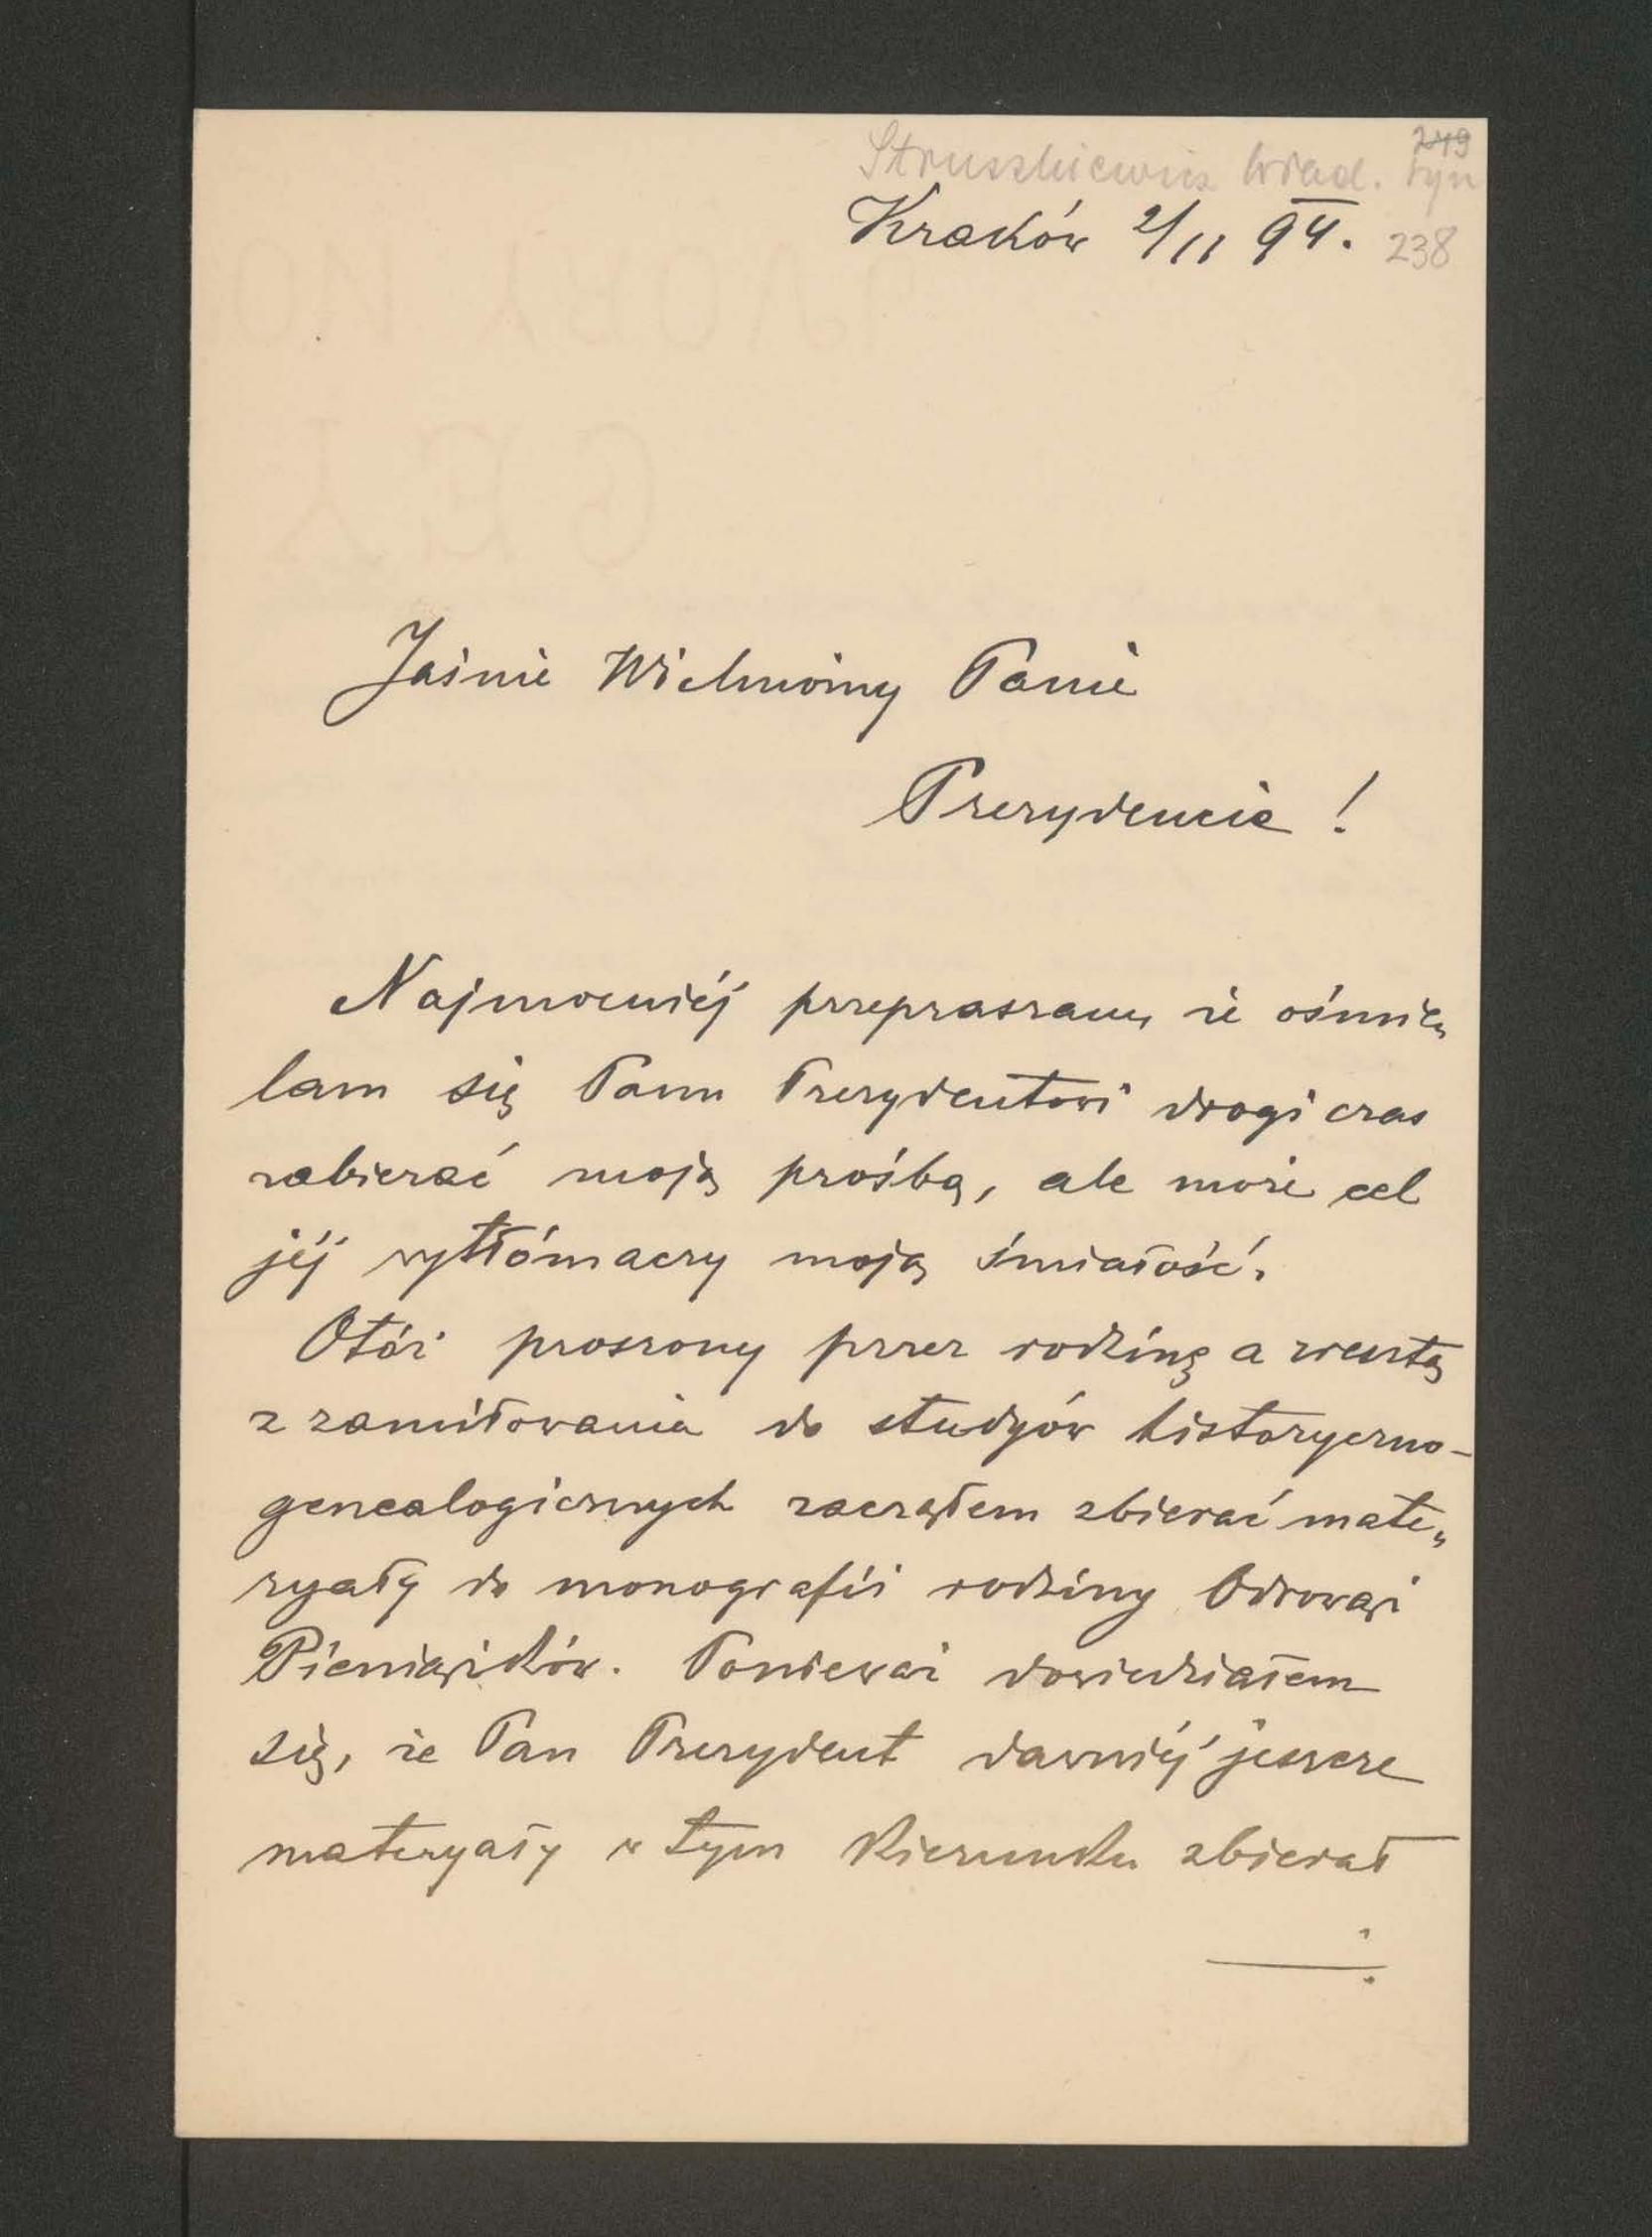 249
Struszkiewicz Wład. syn
Kraków 2/11 94. 238
Jaśnie Wielmożny Panie
Prezydencie !
Najmocniéj przepraszam, że ośmie„
lam się Panu Prezydentowi drogi czas
zabierać moją prośbą, ale może cel
jéj wytłómaczy moją śmiałość.
Otóż proszony przez rodzinę a zresztą
z zamiłowania do studyów historyczno-
genealogicznych zacząłem zbierać mate„
ryały do monografii rodziny Odrowąż
Pieniążków. Ponieważ dowiedziałem
się, że Pan Prezydent dawniéj jeszcze
materyały w tym kierunku zbierał